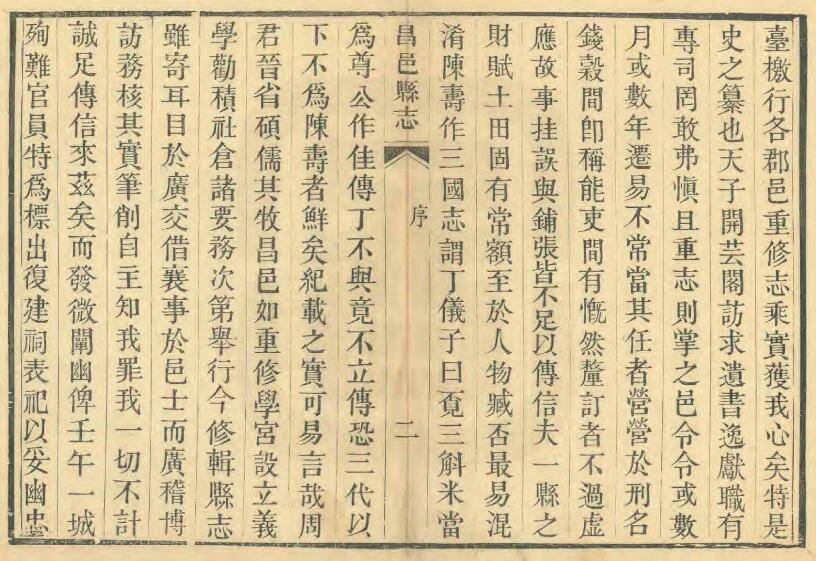 臺檄行各郡邑重修志乘實獲我心矣特是
史之纂也天子開芸閣訪求遺書逸獻職有
專司罔敢弗愼且重志則掌之邑令令或數
月或數年遷易不常當其任者營營於刑名
錢穀間卽稱能吏間有慨然釐訂者不過虛
應故事挂誤與鋪張皆不足以傳信夫一縣之
財賦土田固有常額至於人物臧否最易混
淆陳壽作三國志謂丁儀子曰覓三斛米當
昌邑縣志
序
二
爲尊公作佳傳丁不與竟不立傳恐三代以
下不爲陳壽者鮮矣紀載之實可易言哉周
君晉省碩儒其牧昌邑如重修學宮設立義
學勸積社倉諸要務次第舉行今修輯縣志
雖寄耳目於廣交借襄事於邑士而廣稽博
訪務核其實筆削自主知我罪我一切不計
誠足傳信來茲矣而發微闡幽俾壬午一城
殉難官員特爲標出復建祠表祀以妥幽忠